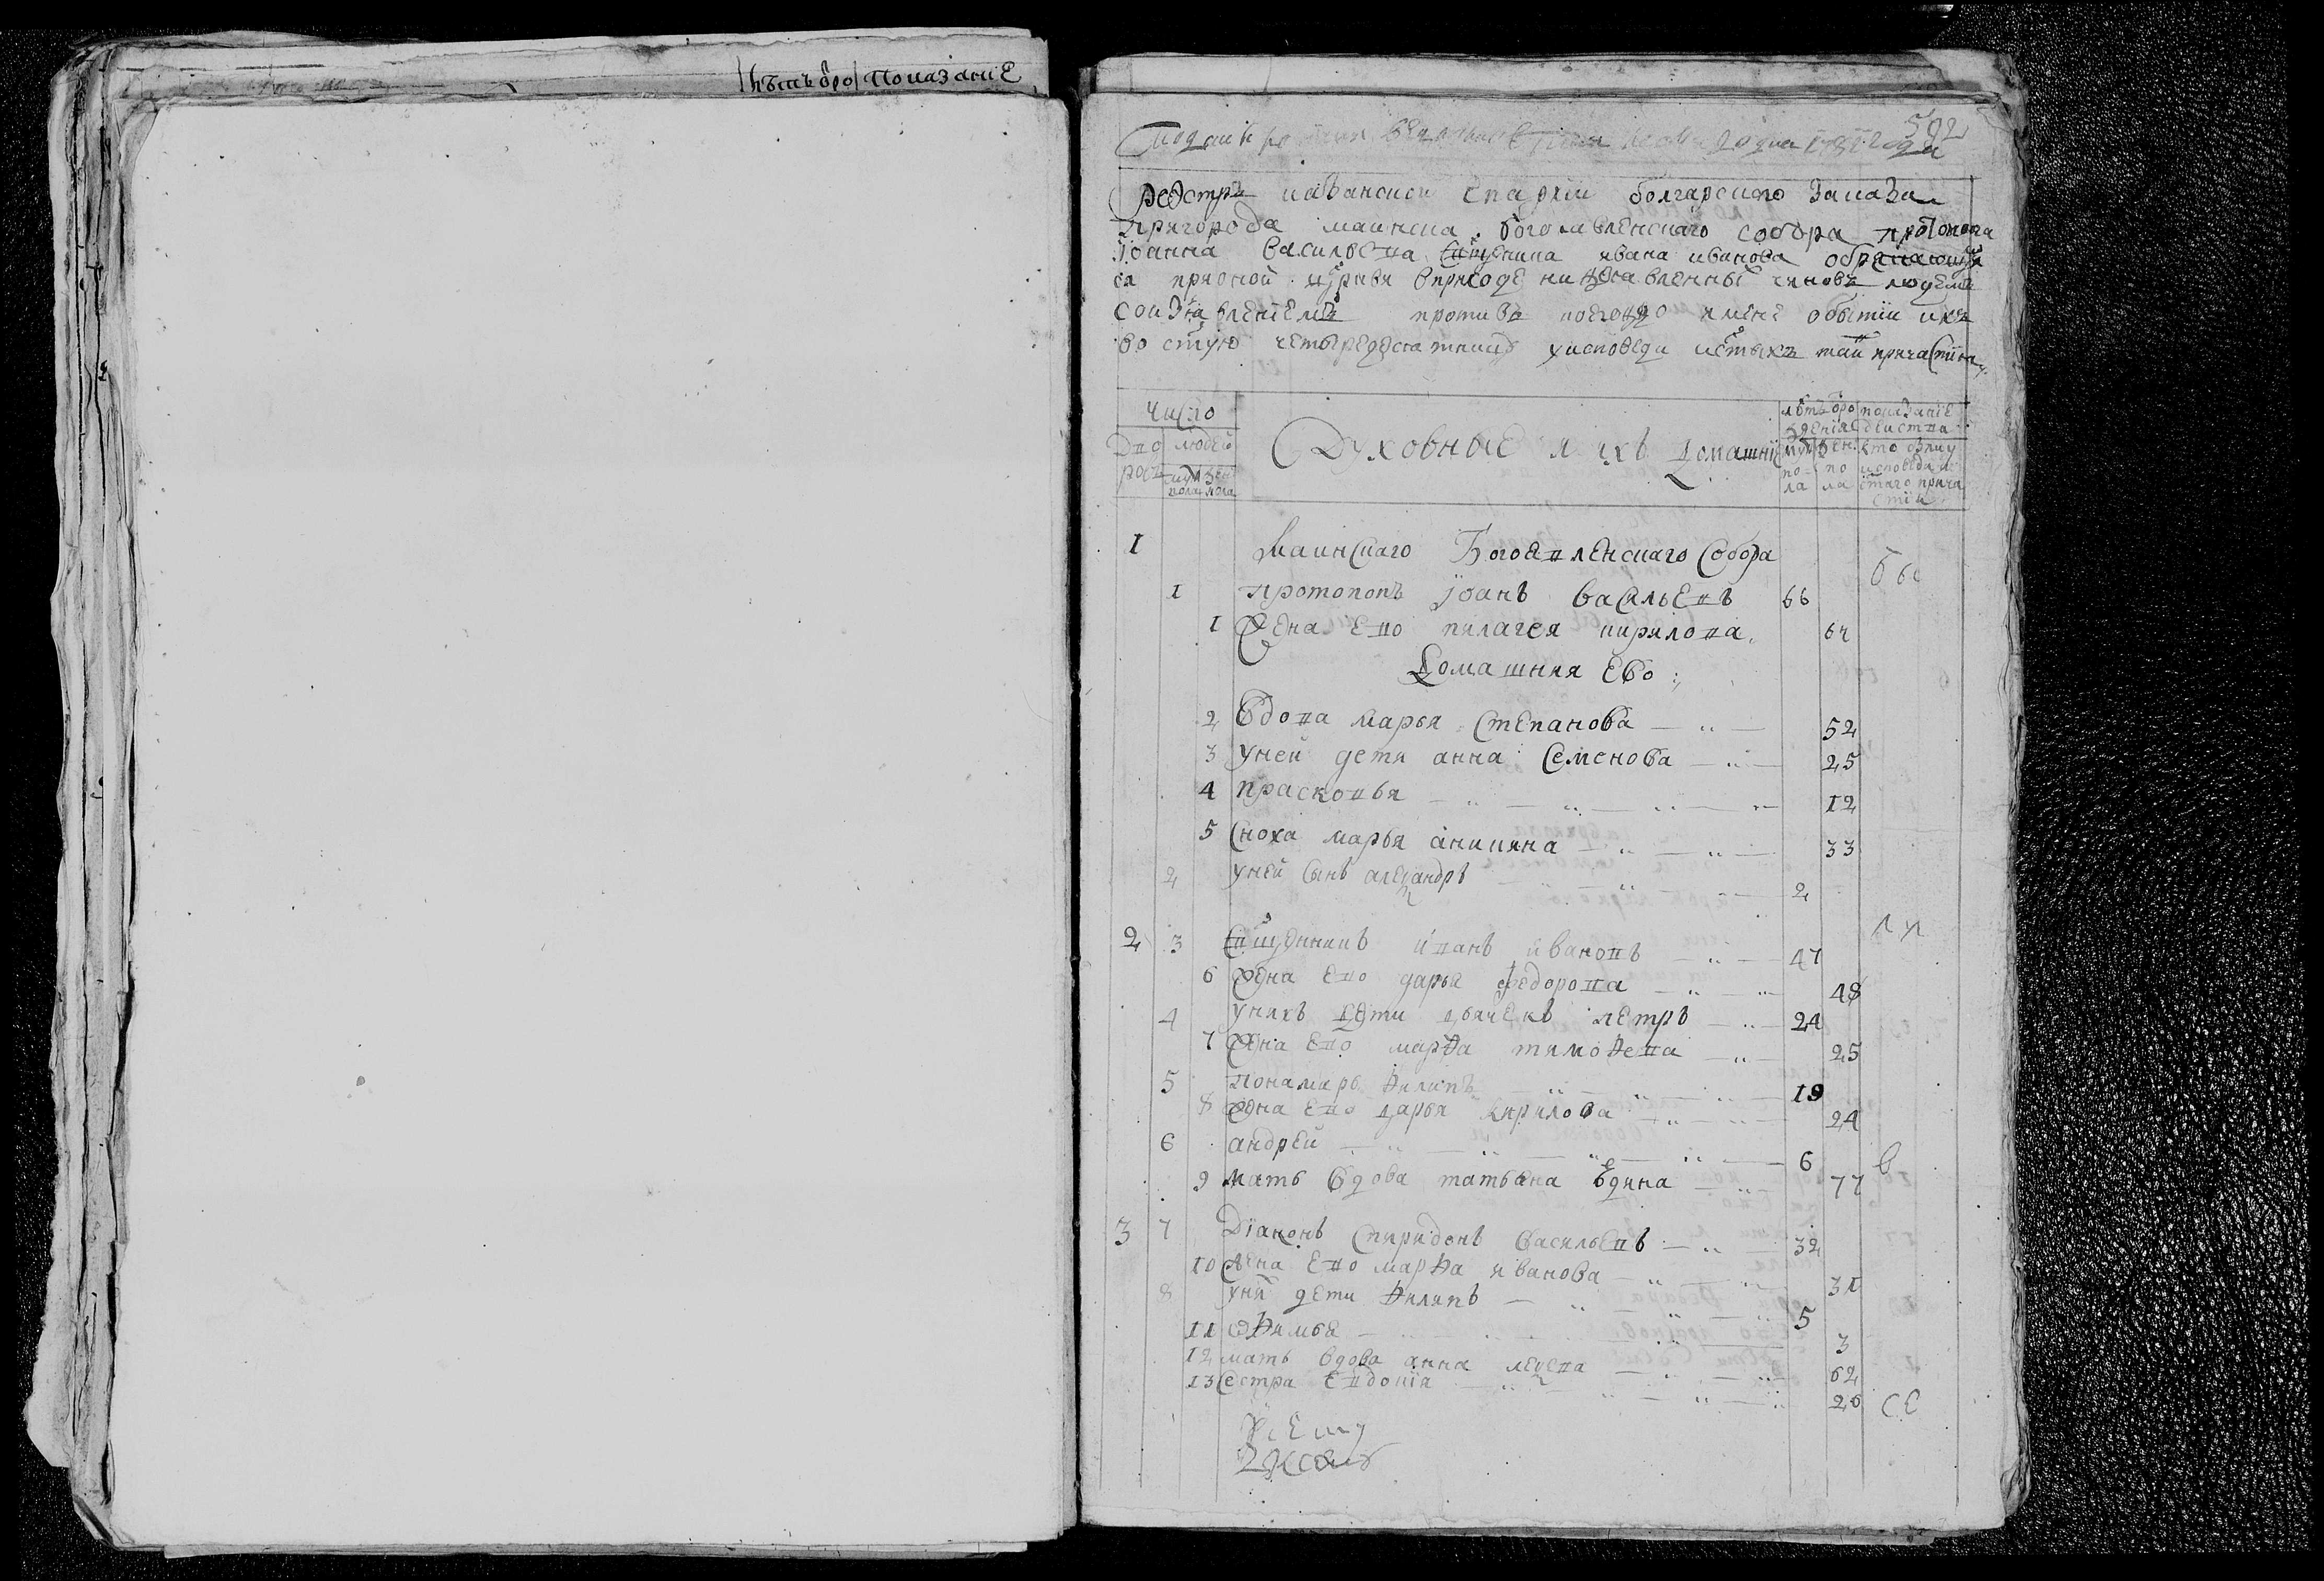 лѣтъ ѿро показание
592
года
Реэстръ казанской епархии болгарского заказа
пригорода маинска богоявленского собора протопопа
Иоанна Васильева сщенника ивана иванова обретающи
ся при оной церкви в приходе нижеявленных чиновъ людемъ
со изъявлениемъ противъ коегождо имене о бытии ихъ
во стую четыредесятницу у исповеди и стыхъ таин причастия
число
дво
ровъ
людей
муж
пола
жен
пола
Духовные и ихъ домашние
лѣтъ ѿро
ждения
муж
по
ла
жен
по
ла
показание
действа
кто былъ у
исповеди и
стаго прича
стия
1 Маинскаго Богоявленскаго Собора
1 протопопъ Иоанъ Васильевъ 66
1 Жена ево пилагея кирилова 64
Домашния ево
2 Вдова марья Степанова 52
3 у ней дети анна Семенова 25
4 прасковья 12
5 Сноха марья аникина 33
2 у ней сынъ алеѯандръ 2
2 3 Сщенникъ иванъ ивановъ 47
6 жена ево дарья федорова 48
4 у нихъ дети дьячекъ петръ 24
7 Жена ево марѳа тимоѳева 25
5 понамарь ѳилипъ 19
8 жена ево дарья кирилова 24
6 андрей 6
9 мать вдова татьяна 77
3 7 Диаконъ Спиридонъ Васильевъ 32
10 жена ево марѳа иванова 31
8 у них дети ѳилипъ 5
11 оѳимья 3
12 мать вдова анна 62
13 сестра евдокия 26